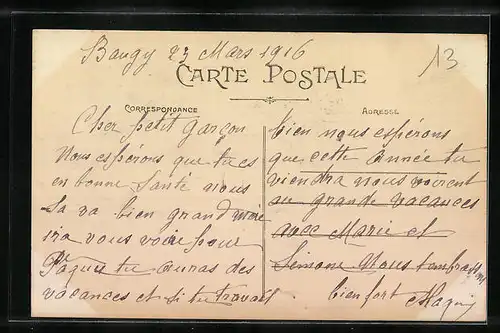 Baugy 23 Mars 1916
13
CARTE POSTALE
CORRESPONDANCE
ADRESSE
Cher petit garçon
Nous espérons que tu es
en bonne Santé nous
Sa va bien grand mère
ira vous voir pour
Pâques tu auras des
vacances et si tu travail
bien nous espérons
que cette année tu
viendra nous voir
au grande vacances
avec Marie et
Simone Nous t'embrassons
bien fort